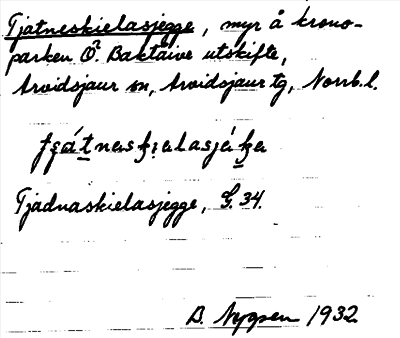 Tjatneskielasjegge, myr å krono-
parken Ö. Baktåive utskifte,
Arvidsjaur sn, Arvidsjaur tg, Norrb.l.
Tjadnaskielasjegge, G. 34.
B. Nygren 1932